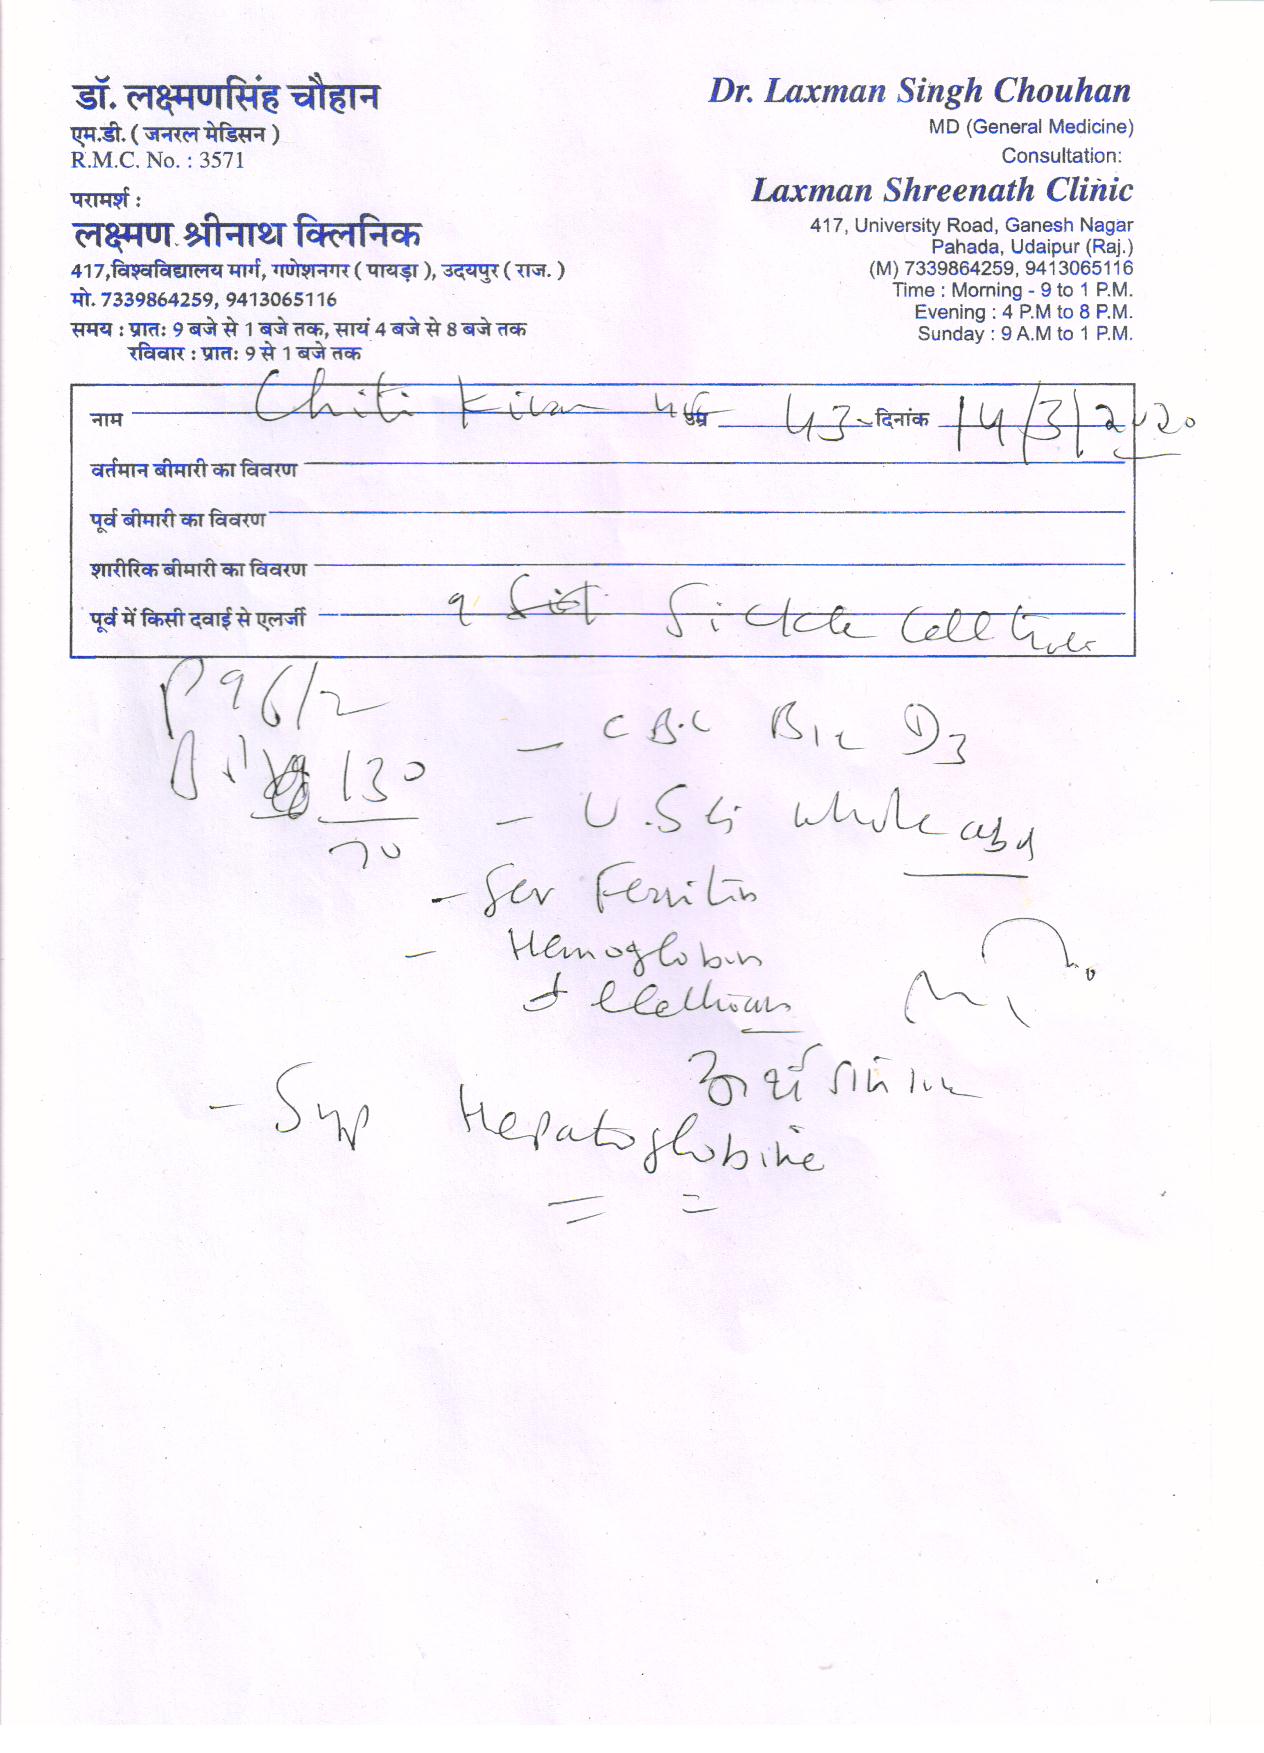 डॉ. लक्ष्मणसिंह चौहान
एम.डी. ( जनरल मेडिसन )
R.M.C. No. : 3571
परामर्श :
लक्ष्मण श्रीनाथ क्लिनिक
417,विश्वविद्यालय मार्ग, गणेशनगर ( पायड़ा ), उदयपुर ( राज. )
मो. 7339864259, 9413065116
समय : प्रातः 9 बजे से 1 बजे तक, सायं 4 बजे से 8 बजे तक
रविवार : प्रातः 9 से 1 बजे तक
Dr. Laxman Singh Chouhan
MD (General Medicine)
Consultation:
Laxman Shreenath Clinic
417, University Road, Ganesh Nagar
Pahada, Udaipur (Raj.)
(M) 7339864259, 9413065116
Time : Morning - 9 to 1 P.M.
Evening : 4 P.M to 8 P.M.
Sunday : 9 A.M to 1 P.M.
नाम Chiti Kiran उम्र 43 दिनांक 14/3/2020
वर्तमान बीमारी का विवरण
पूर्व बीमारी का विवरण
शारीरिक बीमारी का विवरण
पूर्व में किसी दवाई से एलर्जी Sickle Cell
P 96/2
130
70
- CBC B12 D3
- U.S.G whole abd
- Ser Ferritin
- Hemoglobin
- Syp Hepatoglobine